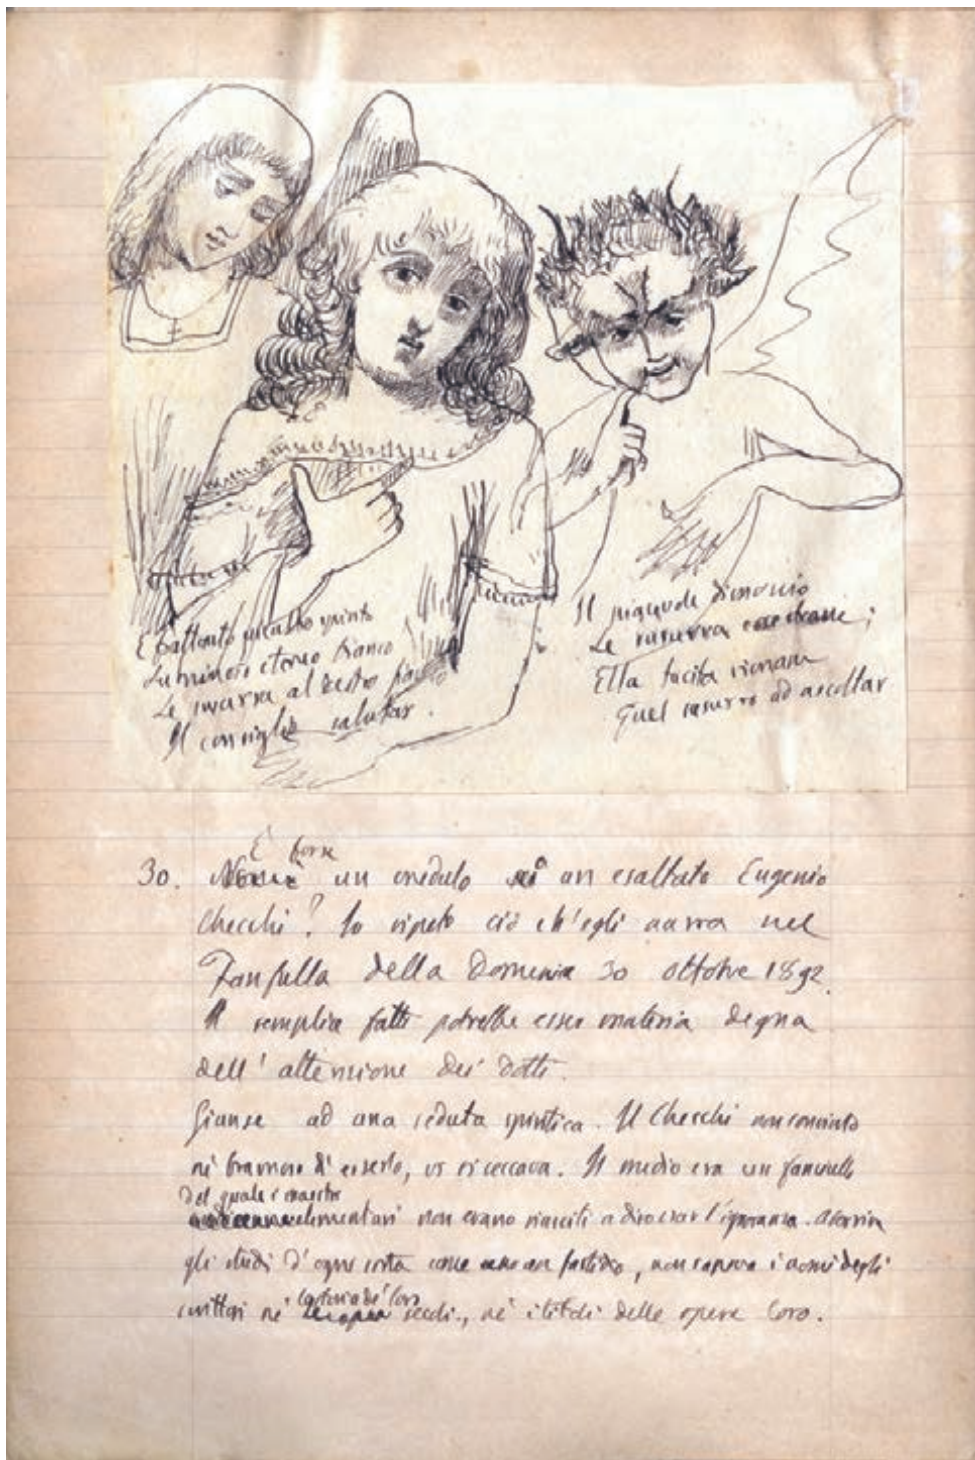 E frattanto
Luminoso eterno bianco
Le susurra al destro
Il consiglio salutar.
Il piacevole dimonio
Le susurra cose strane;
Ella tacita rimane
Quel susurro ad ascoltar
È forse
30. un credulo o un esaltato Eugenio
Checchi? Io ripeto ciò ch'egli narra nel
Fanfulla della Domenica 30 ottobre 1892.
Il semplice fatto potrebbe esser materia degna
dell'attenzione dei dotti.
Giunse ad una seduta spiritica. Il Checchi non convinto
nè bramoso d'esserlo, vi si ceccava. Il medio era un fanciullo
del quale i maestri
elementari non erano riusciti a dirozzar l'ignoranza. Aborriva
gli studi d'ogni sorta come un fastidio, non sapeva i nomi degli
la storia de' loro
scrittori nè secoli, nè i titoli delle opere loro.